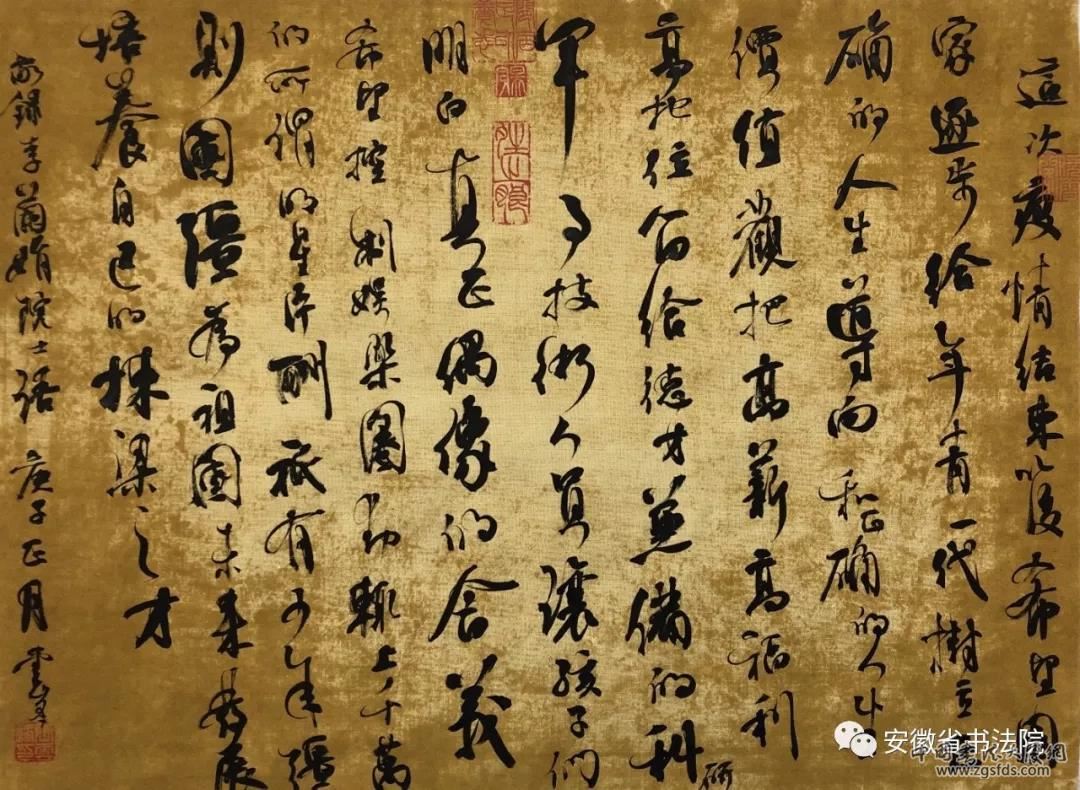 這次疫情结束後希望国
家逐步给年青一代樹立正
确的人生導向和正确的人生
價值觀把高薪高福利
高地位留给德才兼備的科研
军事技術人員讓孩子们
明白真正偶像的含義
希望控制娱樂圈动輒上千萬
的所謂明星片酬祗有少年强
则國强為祖國未来發展
培養自己的棟梁之才
敬録李蘭娟院士语 庚子正月
安徽省书法院
www.zgsfds.com